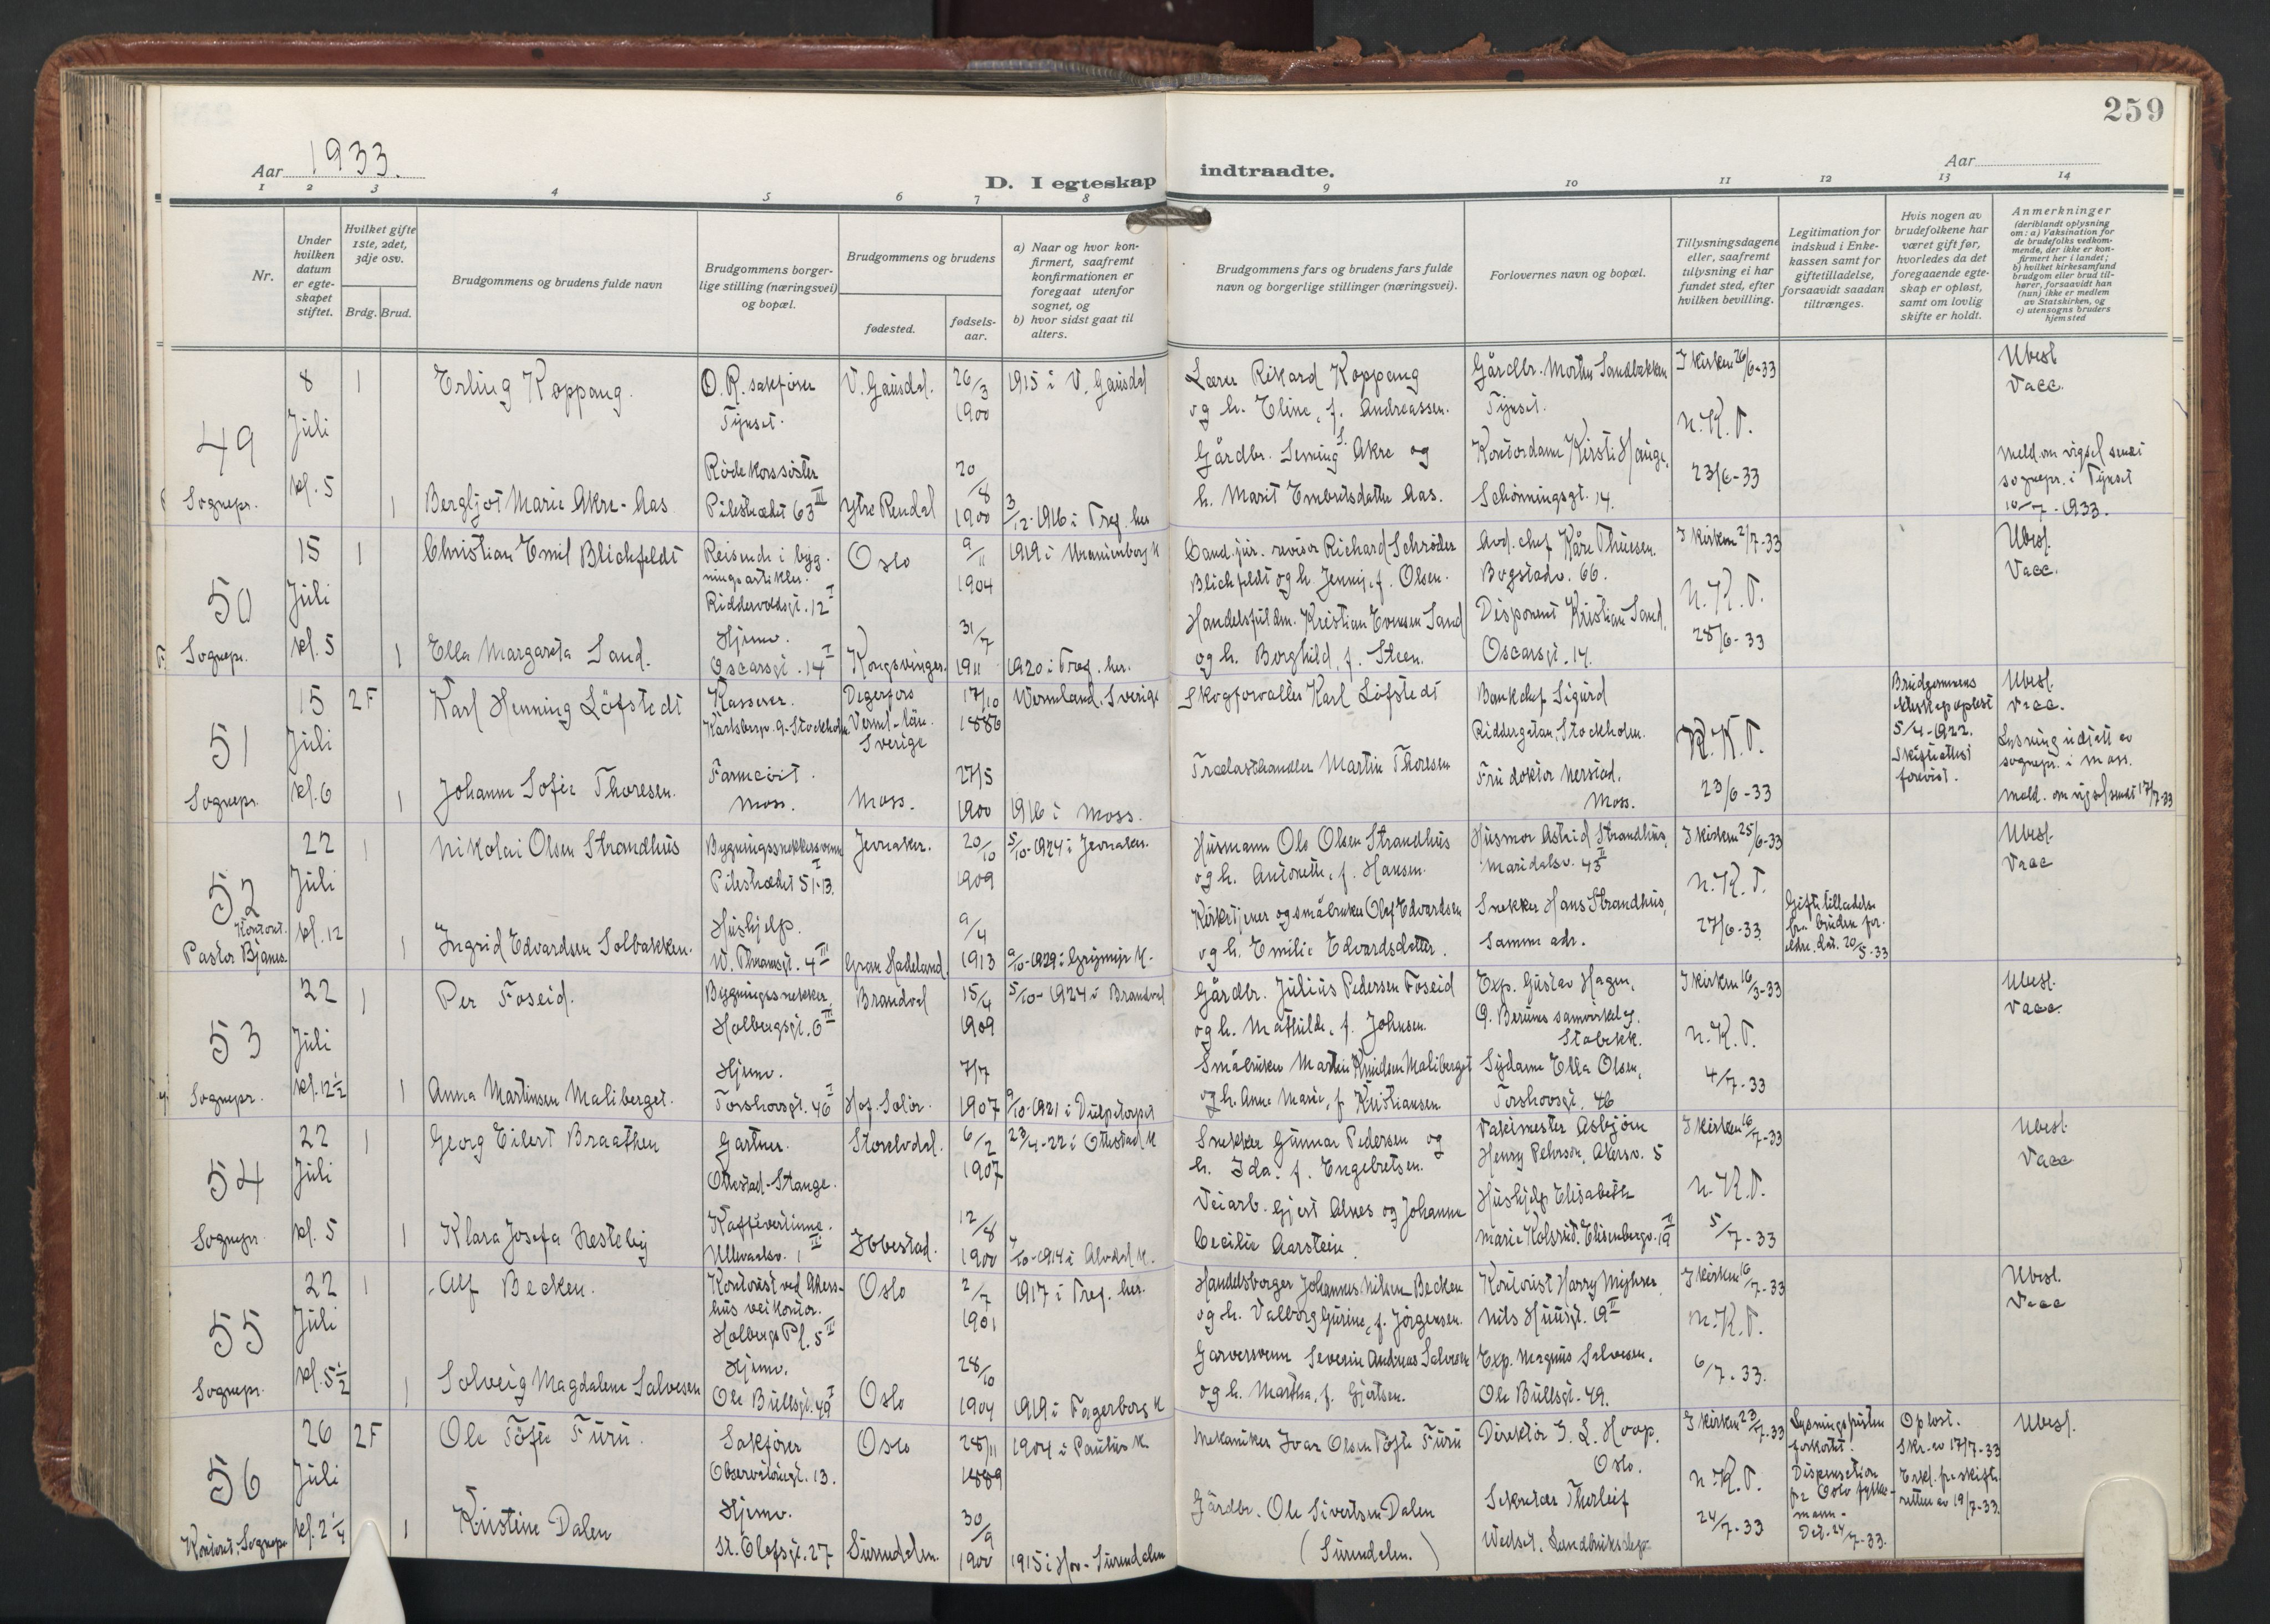 259
Aar 1933.
D. I egteskap indtraadte.
Aar
1 2 3 4 5 6 7 8 9 10 11 12 13 14
Nr.
Under hvilken datum er egteskapet stiftet.
Hvilket gifte 1ste, 2det, 3dje osv.
Brdg. Brud.
Brudgommens og brudens fulde navn
Brudgommens borgerlige stilling (næringsvei) og bopæl.
Brudgommens og brudens
fødested.
fødselsaar.
a) Naar og hvor konfirmert, saafremt konfirmationen er foregaat utenfor sognet, og
b) hvor sidst gaat til alters.
Brudgommens fars og brudens fars fulde navn og borgerlige stillinger (næringsvei).
Forlovernes navn og bopæl.
Tillysningsdagene eller, saafremt tillysning ei har fundet sted, efter hvilken bevilling.
Legitimation for indskud i Enkekassen samt for giftetilladelse, forsaavidt saadan tiltrænges.
Hvis nogen av brudefolkene har været gift før, hvorledes da det foregaaende egteskap er opløst, samt om lovlig skifte er holdt.
Anmerkninger (deriblandt oplysning om: a) Vaksination for de brudefolks vedkommende, der ikke er konfirmert her i landet; b) hvilket kirkesamfund brudgom eller brud tilhører, forsaavidt han (hun) ikke er medlem av Statskirken, og c) utensogns bruders hjemsted
49
Sognepr.
8 Juli kl. 5
1
Erling Koppang.
O.R. sakfører
Tynset.
V. Gausdal.
26/3 1900
1915 i V. Gausdal
Lærer Rikard Koppang
og h. Eline, f. Andreassen.
Gårdbr. Morten Sandbakken
Tynset.
I kirken 26/6-33
n.K.T.
23/6-33
Ubesl
Vacc.
1
Bergljot Marie Akre-Aas
Røde korssøster
Pilestrædet 63 III
Ytre Rendal
20/8 1900
3/12-1916 i Tref. her
Gårdbr. Semming S. Akre og
h. Marit Embretsdatter Aas.
Kontordame Kirsti Hauge,
Schønningsgt. 14.
Meld. om vigsel sendt
sognepr. i Tynset
10/7-1933.
50
Sognepr.
15 Juli kl. 5
1
Christian Emil Blichfeldt
Reisende i byg-
ningsartikler.
Riddervoldsgt. 12 I
Oslo
9/11 1904
1919 i Uranienborg k
Cand.jur. revisor Richard Schrøder
Blichfeldt og h. Jenny, f. Olsen.
Avd. chef Kåre Thuesen.
Bogstadv. 66.
I kirken 2/7-33
n.K.T.
28/6-33
Ubesl.
Vacc.
1
Ella Margareta Sand.
Hjemv.
Oscarsgt. 14 I
Kongsvinger.
31/7 1911
1920 i Tref. her.
Handelsfuldm. Kristian Evensen Sand
og h. Borghild, f. Steen.
Disponent Kristian Sand,
Oscarsgt. 14.
51
Sognepr.
15 Juli kl. 6
2F
Karl Henning Löfstedt
Kasserer.
Karlsbergv. 9. Stockholm.
Degerfors
Verml.-län.
Sverige
17/10 1886
Wermland. Sverige
Skogforvalter Karl Löfstedt
Bankchef Sigurd
Riddergatan, Stockholm.
K.K.T.
23/6-33
Brudgommens
ekteskap opløst
5/4-1922.
Skifteattest
forevist.
Ubesl.
Vacc.
Lysning utstedt av
sognepr. i Moss.
Meld. om vigsel sendt 17/7-33
1
Johanne Sofie Thoresen.
Farmceut.
Moss.
Moss.
27/5 1900
1916 i Moss.
Trælasthandler Martin Thoresen
Fru doktor Nerstad.
Moss.
52
Kontoret.
Pastor Bjånes.
22 Juli kl. 12
1
Nikolai Olsen Strandhus
Bygningssnekkersvenn
Pilestrædet 51-13 I
Jevnaker.
20/10 1909
5/10-1924 i Jevnaker.
Husmann Ole Olsen Strandhus
og h. Antonette, f. Hansen.
Husmor Astrid Strandhus,
Maridalsv. 43 II
I kirken 25/6-33
n.K.T.
27/6-33
Giftetilladelse
fra brudens for-
eldre, dat. 20/5-33
Ubesl.
Vacc
1
Ingrid Edvardsen Solbakken.
Hushjelp.
W. Thranesgt. 4 III
Gran Hadeland.
9/4 1913
9/10-1929 i Grymyr k.
Kirketjener og småbruker Olaf Edvardsen
og h. Emilie Edvardsdatter.
Snekker Hans Strandhus,
Samme adr.
53
Sognepr.
22 Juli kl. 12½
1
Per Foseid.
Bygningssnekker,
Holbergsgt. 6 III
Brandval
15/4 1909
5/10-1924 i Brandval
Gårdbr. Julius Pedersen Foseid
og h. Mathilde, f. Johnsen.
Exp. Gustav Hagen,
Ø. Bærums samvirkelag.
Stabekk.
I kirken 16/3-33
n.K.T.
4/7-33
Ubesl.
Vacc.
1
Anna Martinsen Maliberget.
Hjemv.
Torshovgt. 46 I
Hof. Solør.
7/7 1907
9/10-1921 i Dulpetorpet
Småbruker Martin Knudsen Maliberget
og h. Anne Marie, f. Kristiansen.
Sydame Ella Olsen,
Torshovgt. 46
54
Sognepr.
22 Juli kl. 5
1
Georg Eilert Braathen
Gartner.
Ottestad-Stange.
Storelvdal.
6/2 1907
23/4-22 i Ottestad k
Snekker Gunnar Pedersen og
h. Ida, f. Engebretsen.
Vaktmester Asbjørn
Henry Pehrson, Akersv. 5
I kirken 16/7-33
n.K.T.
5/7-33
Ubesl.
Vacc
1
Klara Josefa Nesteby
Kaffevertinne.
Ullevaalsv. 1 II
Ibbestad.
12/8 1900
4/10-1914 i Alvdal k.
Veiarb. Gjert Alnes og Johanna
Cecilie Aarstein.
Hushjelp Elisabeth
Marie Kolsrud. Elisenbergv. 19 IV
55
Sognepr.
22 Juli kl. 5½
1
Alf Becken.
Kontorist ved Akers-
hus veikontor.
Holbergs Pl. 5 II
Oslo
2/7 1901
1917 i Tref. her.
Handelsborger Johannes Nilsen Becken
og h. Valborg Gurine, f. Jørgensen.
Kontorist Harry Myhrer,
Nils Huusgt. 19 II
I kirken 16/7-33
n.K.T.
6/7-33.
Ubesl.
Vacc
1
Solveig Magdalene Salvesen
Hjemv.
Ole Bullsgt. 49 I
Oslo
28/10 1904
1919 i Fagerborg k
Garversvenn Severin Andreas Salvesen
og h. Martha, f. Gjertsen.
Exp. Magnus Salvesen.
Ole Bullsgt. 49.
56
Kontoret. Sognepr.
26 Juli kl. 2¼
2F
Ole Töfte Furu.
Sakfører
Observatoriegt. 13.
Oslo
28/11 1889
1904 i Paulus k.
Mekaniker Ivar Olsen Töfte Furu
Direktør G. L. Hoop.
Oslo.
I kirken 23/7-33
n.K.T.
24/7-33
Lysningsfristen
forkortet.
Dispensation
fra Oslo fylke-
mann.
Dat. 24/7-33.
Opløst.
Skr. av 17/7-33
Erkl. fra skifte-
retten av 19/7-33.
Ubesl.
1
Kristine Dalen
Hjemv.
St. Olafsgt. 27
Surendalen.
30/9 1900
1915 i Mo-Surendalen
Gårdbr. Ole Sivertsen Dalen
(Surendalen.)
Sekretær Thorleif
Wedset, Landbruksdep.